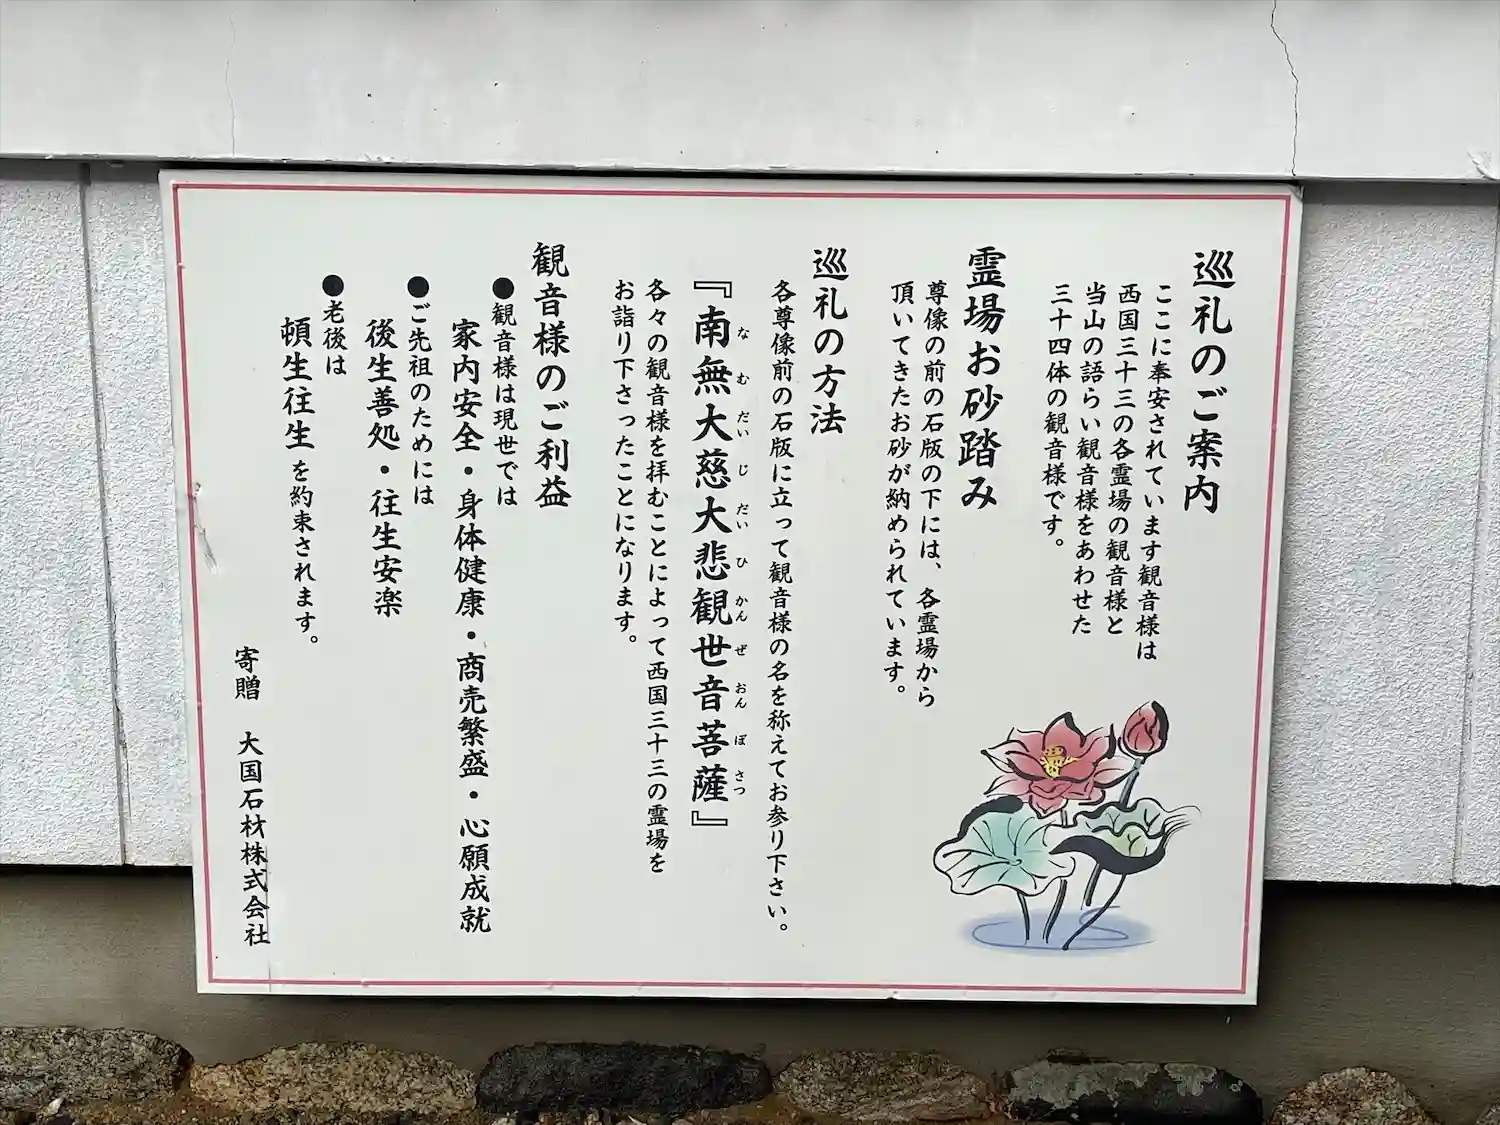 巡礼のご案内
ここに奉安されています観音様は
西国三十三の各霊場の観音様と
当山の語らい観音様をあわせた
三十四体の観音様です。
霊場お砂踏み
尊像の前の石版の下には、各霊場から
頂いてきたお砂が納められています。
巡礼の方法
各尊像前の石版に立って観音様の名を称えてお参り下さい。
『南無大慈大悲観世音菩薩』
なむだいじだいひかんぜおんぼさつ
各々の観音様を拝むことによって西国三十三の霊場を
お詣り下さったことになります。
観音様のご利益
●観音様は現世では
家内安全・身体健康・商売繁盛・心願成就
●ご先祖のためには
後生善処・往生安楽
●老後は
頓生往生を約束されます。
寄贈　大国石材株式会社